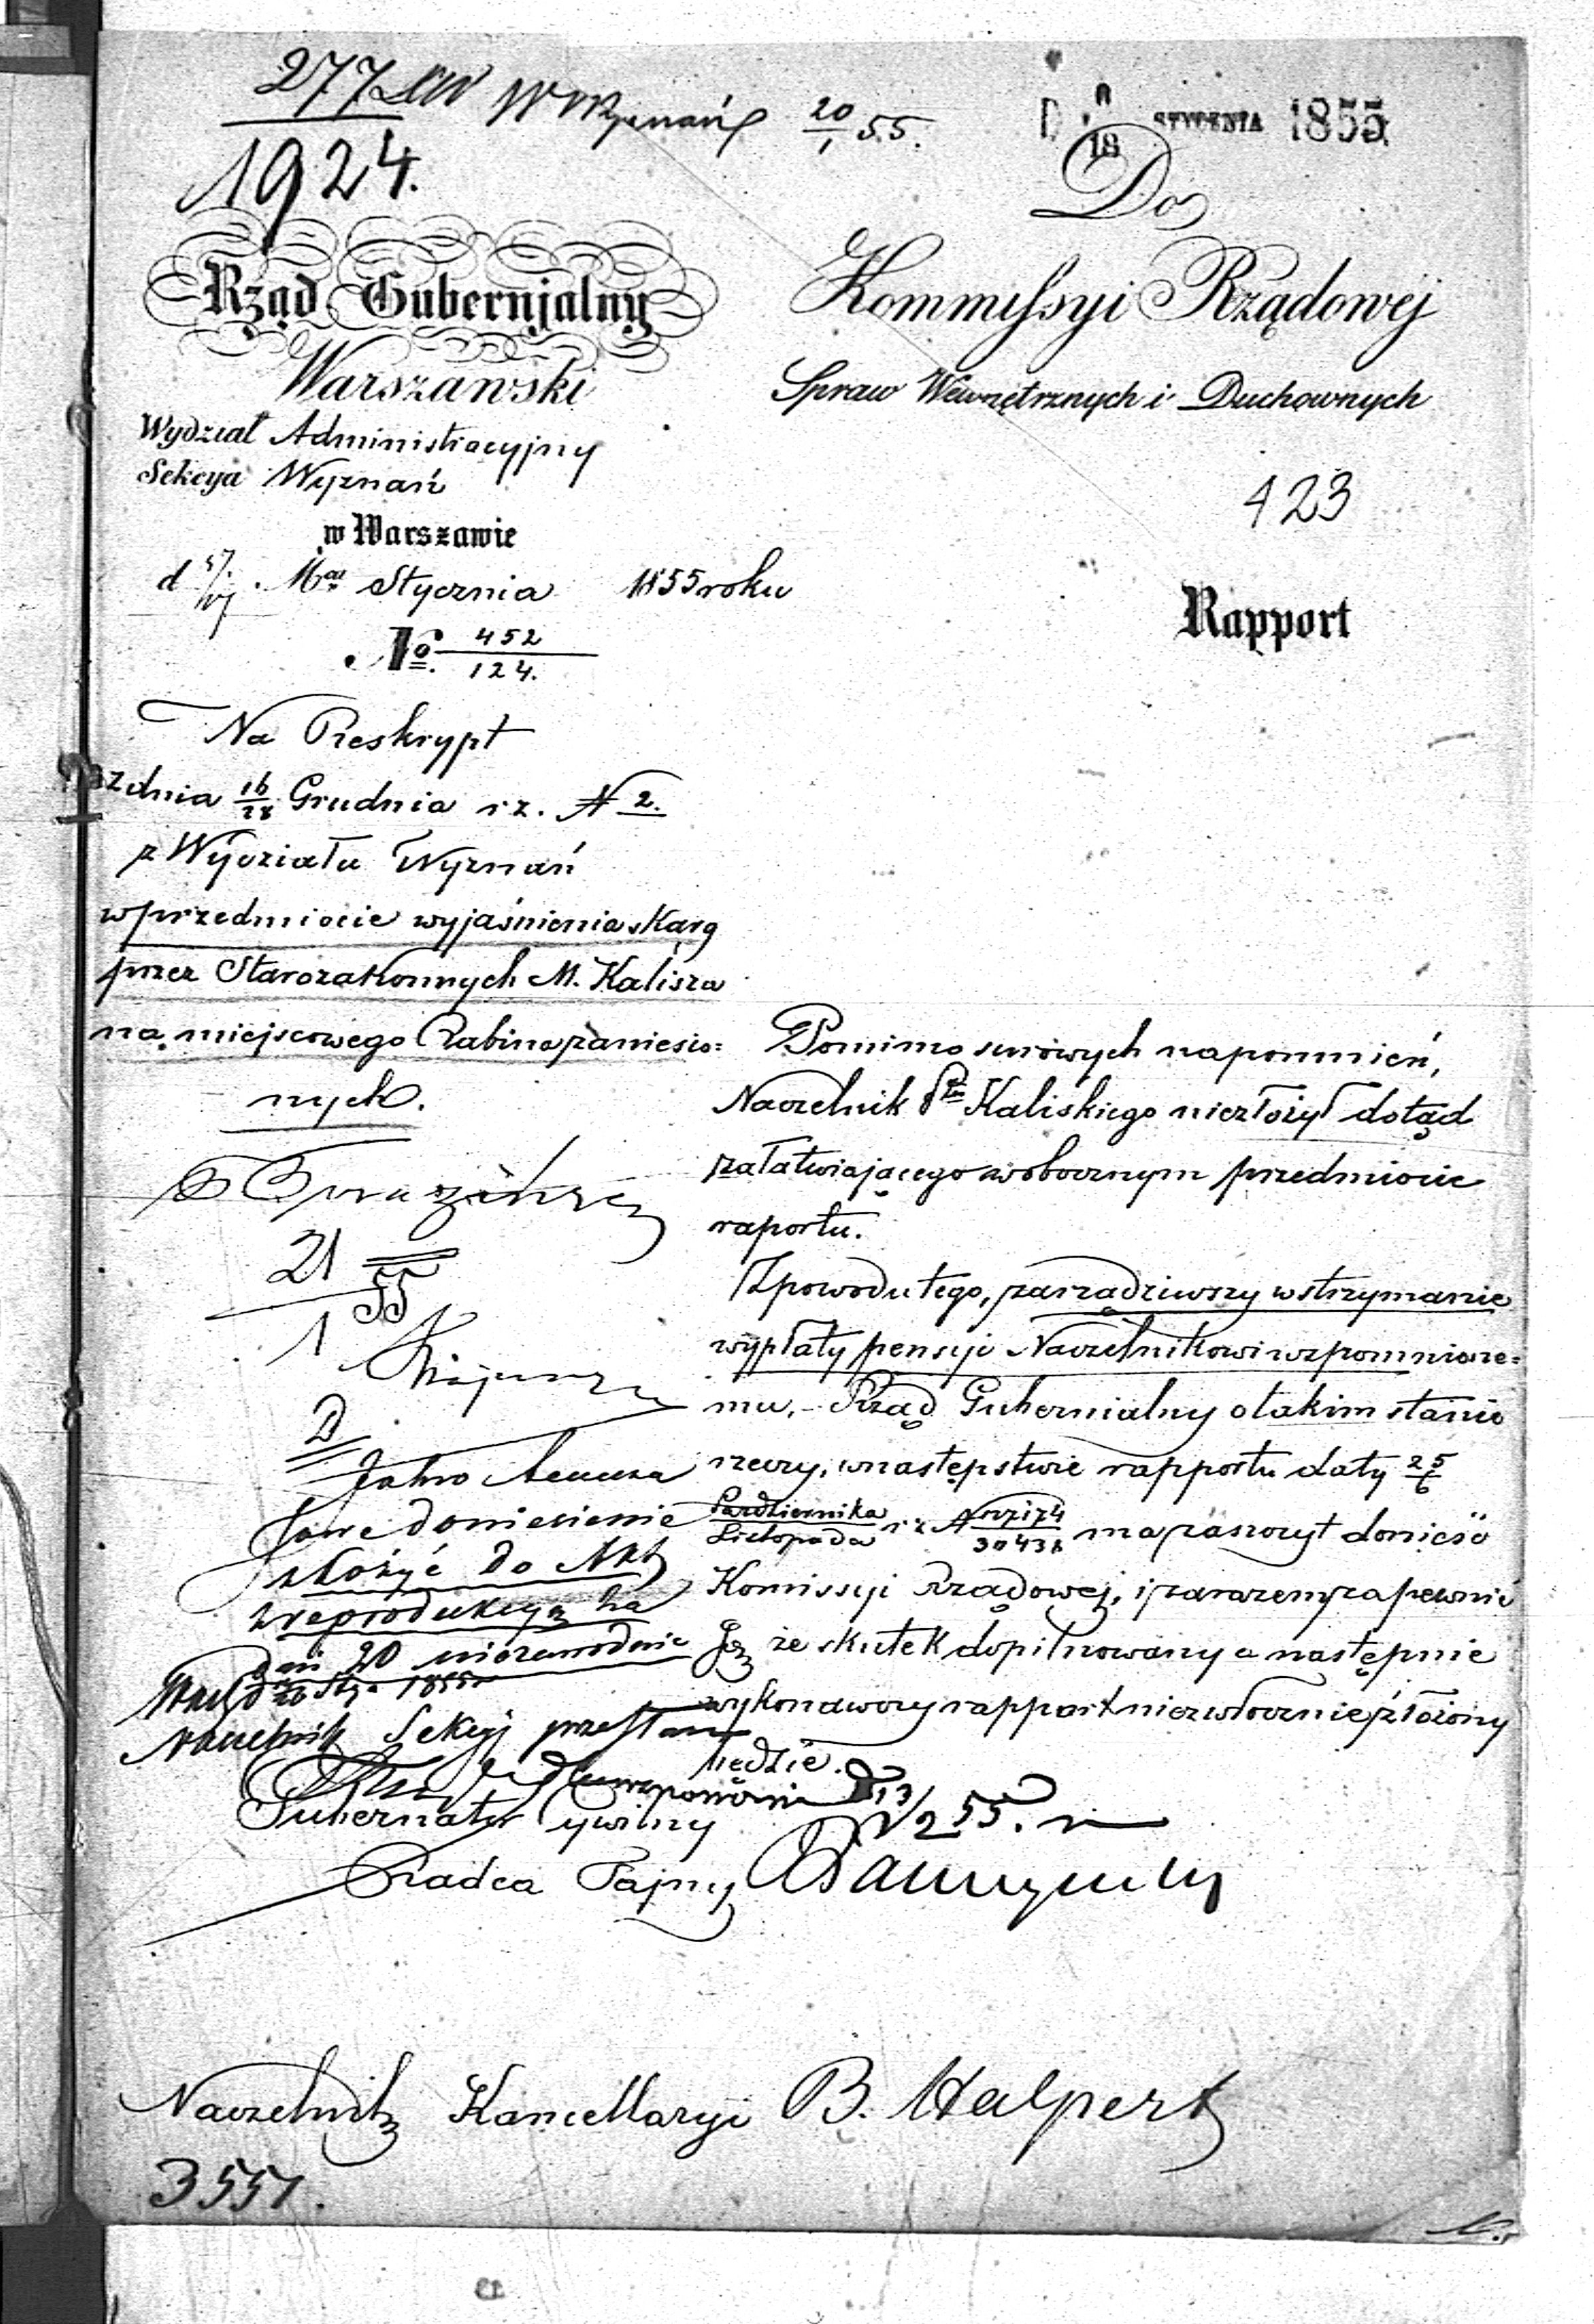 277
1924.
20/1 55.
18 STYCZNIA 1855
Do
Rząd Gubernjalny
Warszawski
Kommissyi Rządowej
Spraw Wewnętrznych i Duchownych
Wydział Administracyjny
Sekcya Wyznań
w Warszawie
d 5/17 Mca Stycznia 1855 roku
No. 452/124.
423
Rapport
Na Reskrypt
z dnia 16/28 Grudnia r. z. N 2.
z Wydziału Wyznań
w przedmiocie wyjaśnienia skarg
przez Starozakonnych M. Kalisza
na miejscowego Rabina zaniesio=
nych.
21/1 55
Pomimo surowych napomnień,
Naczelnik Ptu Kaliskiego niezłożył dotąd
załatwiającego w obocznym przedmiocie
raportu.
Z powodu tego, zarządziwszy wstrzymanie
wypłaty pensyi Naczelnikowi wzpomnione=
mu, - Rząd Gubernialny o takim stanie
rzeczy, w następstwie rapportu daty 25/6
Października/Listopada r z N ma zaszczyt donieść
Komissyi Rządowej, i zarazem zapewnić
Ją że skutek dopilnowany a następnie
wykonawczy rapport niezwłocznie złożony
będzie.
D
Jako
doniesienie
złożyć do Akt
z reprodukcyą na
dni 20 niezawodnie
Naczelnik Sekcyj
Gubernator Cywilny
Radca Tajny
Naczelnik Kancellaryi B. Halpert
3551.